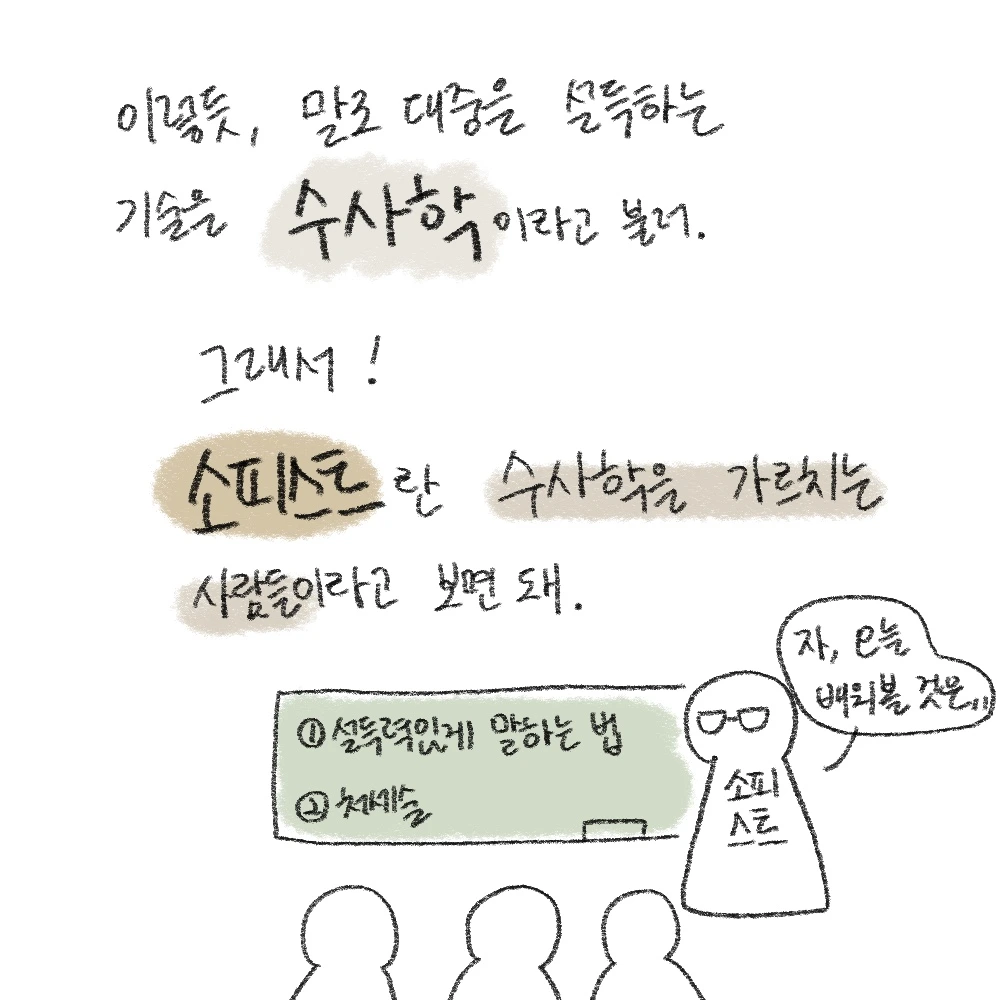 이렇듯, 말로 대중을 설득하는
기술을 수사학이라고 불러.
그래서!
소피스트란 수사학을 가르치는
사람들이라고 보면 돼.
자, 오늘
배워볼 것은,,
① 설득력있게 말하는 법
② 처세술
소피
스트